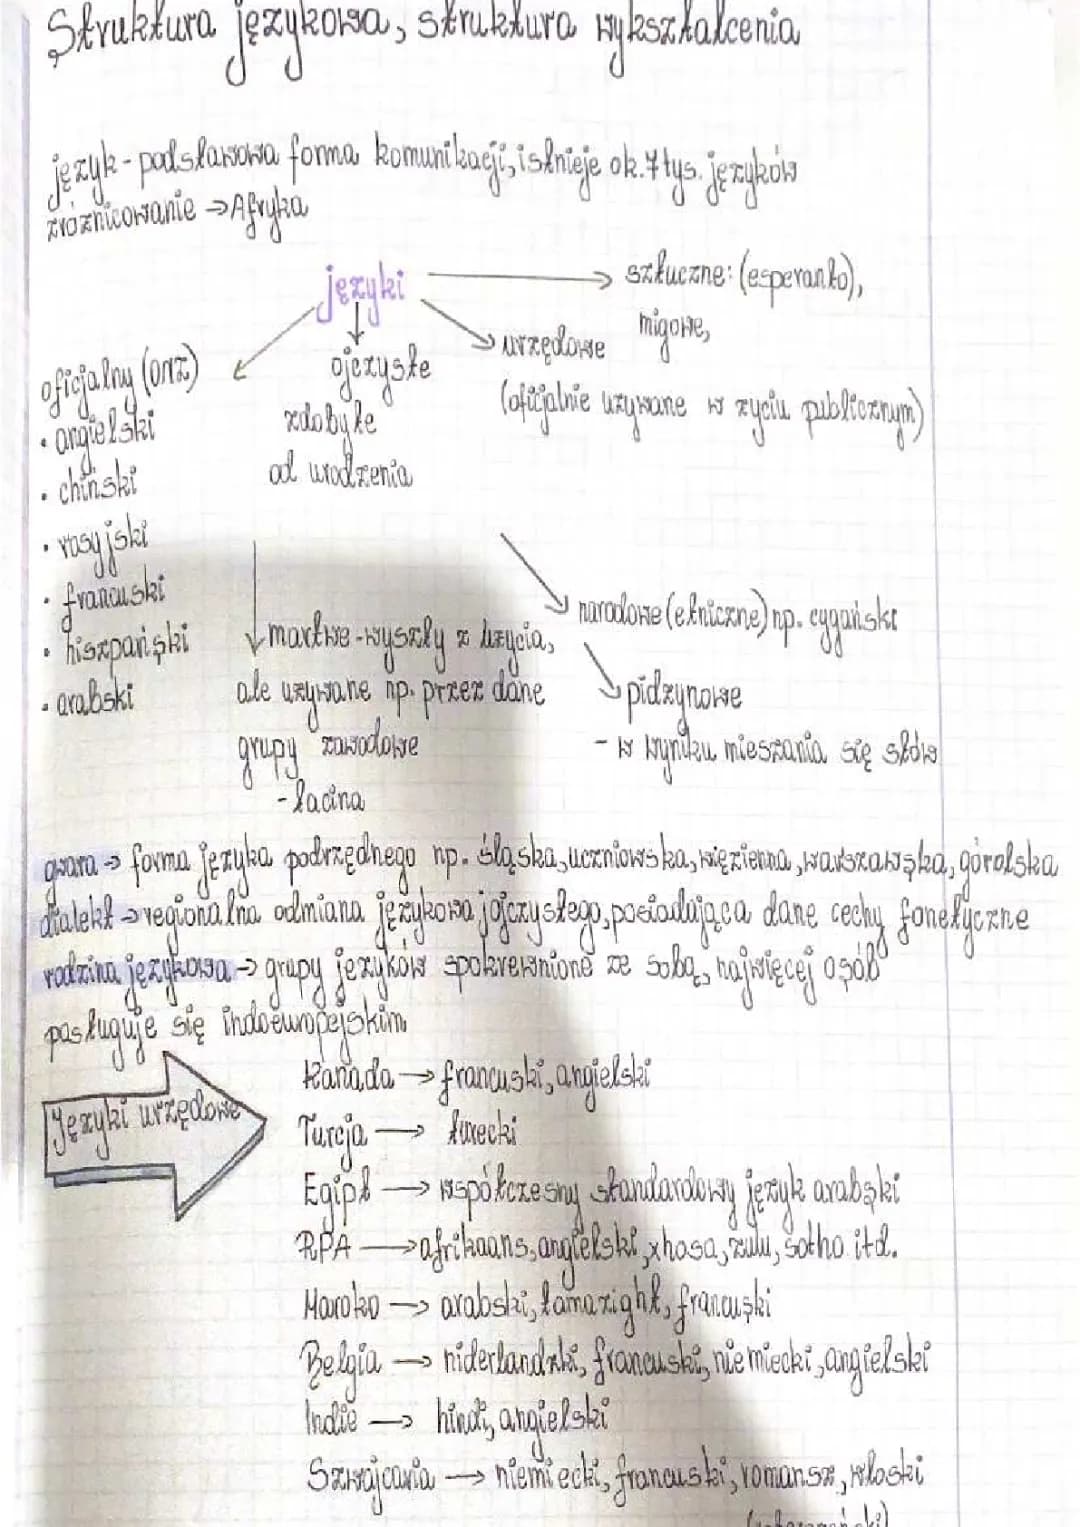 Struktura językowa, struktura wykształcenia
język - podstawowa forma komunikacji, istnieje ok. 7 tys. języków
zróżnicowanie → Afryka
języki
→ sztuczne: (esperanto),
migowe,
→ urzędowe
(oficjalnie używane w życiu publicznym)
ojczyste
zdobyte
od urodzenia
oficjalny (ONZ)
• angielski
• chiński
• rosyjski
• francuski
• hiszpański
• arabski
martwe - wyszły z użycia,
ale używane np. przez dane
grupy zawodowe
- łacina
narodowe (etniczne) np. cygański
pidżynowe
- w wyniku mieszania się słów
gwara → forma języka podrzędnego np. śląska, uczniowska, więzienna, warszawska, góralska
dialekt → regionalna odmiana językowa jojczystego, posiadająca dane cechy fonetyczne
rodzina językowa → grupy języków spokrewnione ze sobą, najwięcej osób
posługuje się indoeuropejskim
Języki urzędowe
Kanada → francuski, angielski
Turcja → turecki
Egipt → współczesny standardowy język arabski
RPA → afrikaans, angielski, xhosa, zulu, sotho itd.
Maroko → arabski, tamazight, francuski
Belgia → niderlandzki, francuski, niemiecki, angielski
Indie → hindi, angielski
Szwajcaria → niemiecki, francuski, romansz, włoski